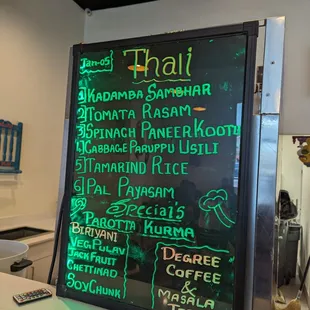 Jan-05
Thali
1 Kadamba Sambhar
2 Tomata Rasam
3 Spinach Paneer Kootu
4 Cabbage Paruppu Usili
5 Tamarind Rice
6 Pal Payasam
Special's
Parotta Kurma
Biriyani
Veg. Pulav
Jack Fruit
Chettinad
Soy Chunk
Degree
Coffee
&
Masala